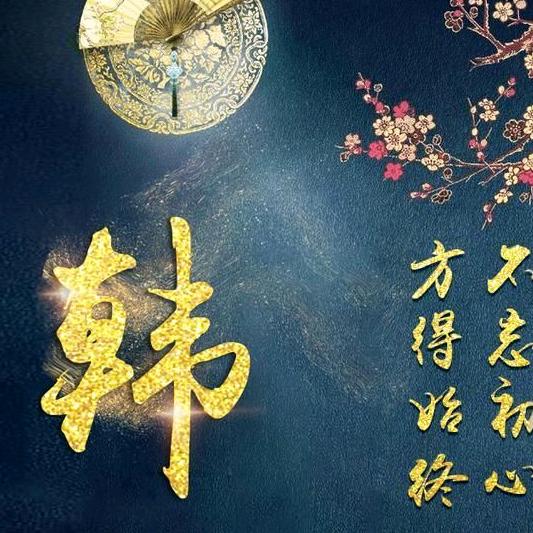 韩
不忘初心
方得始终